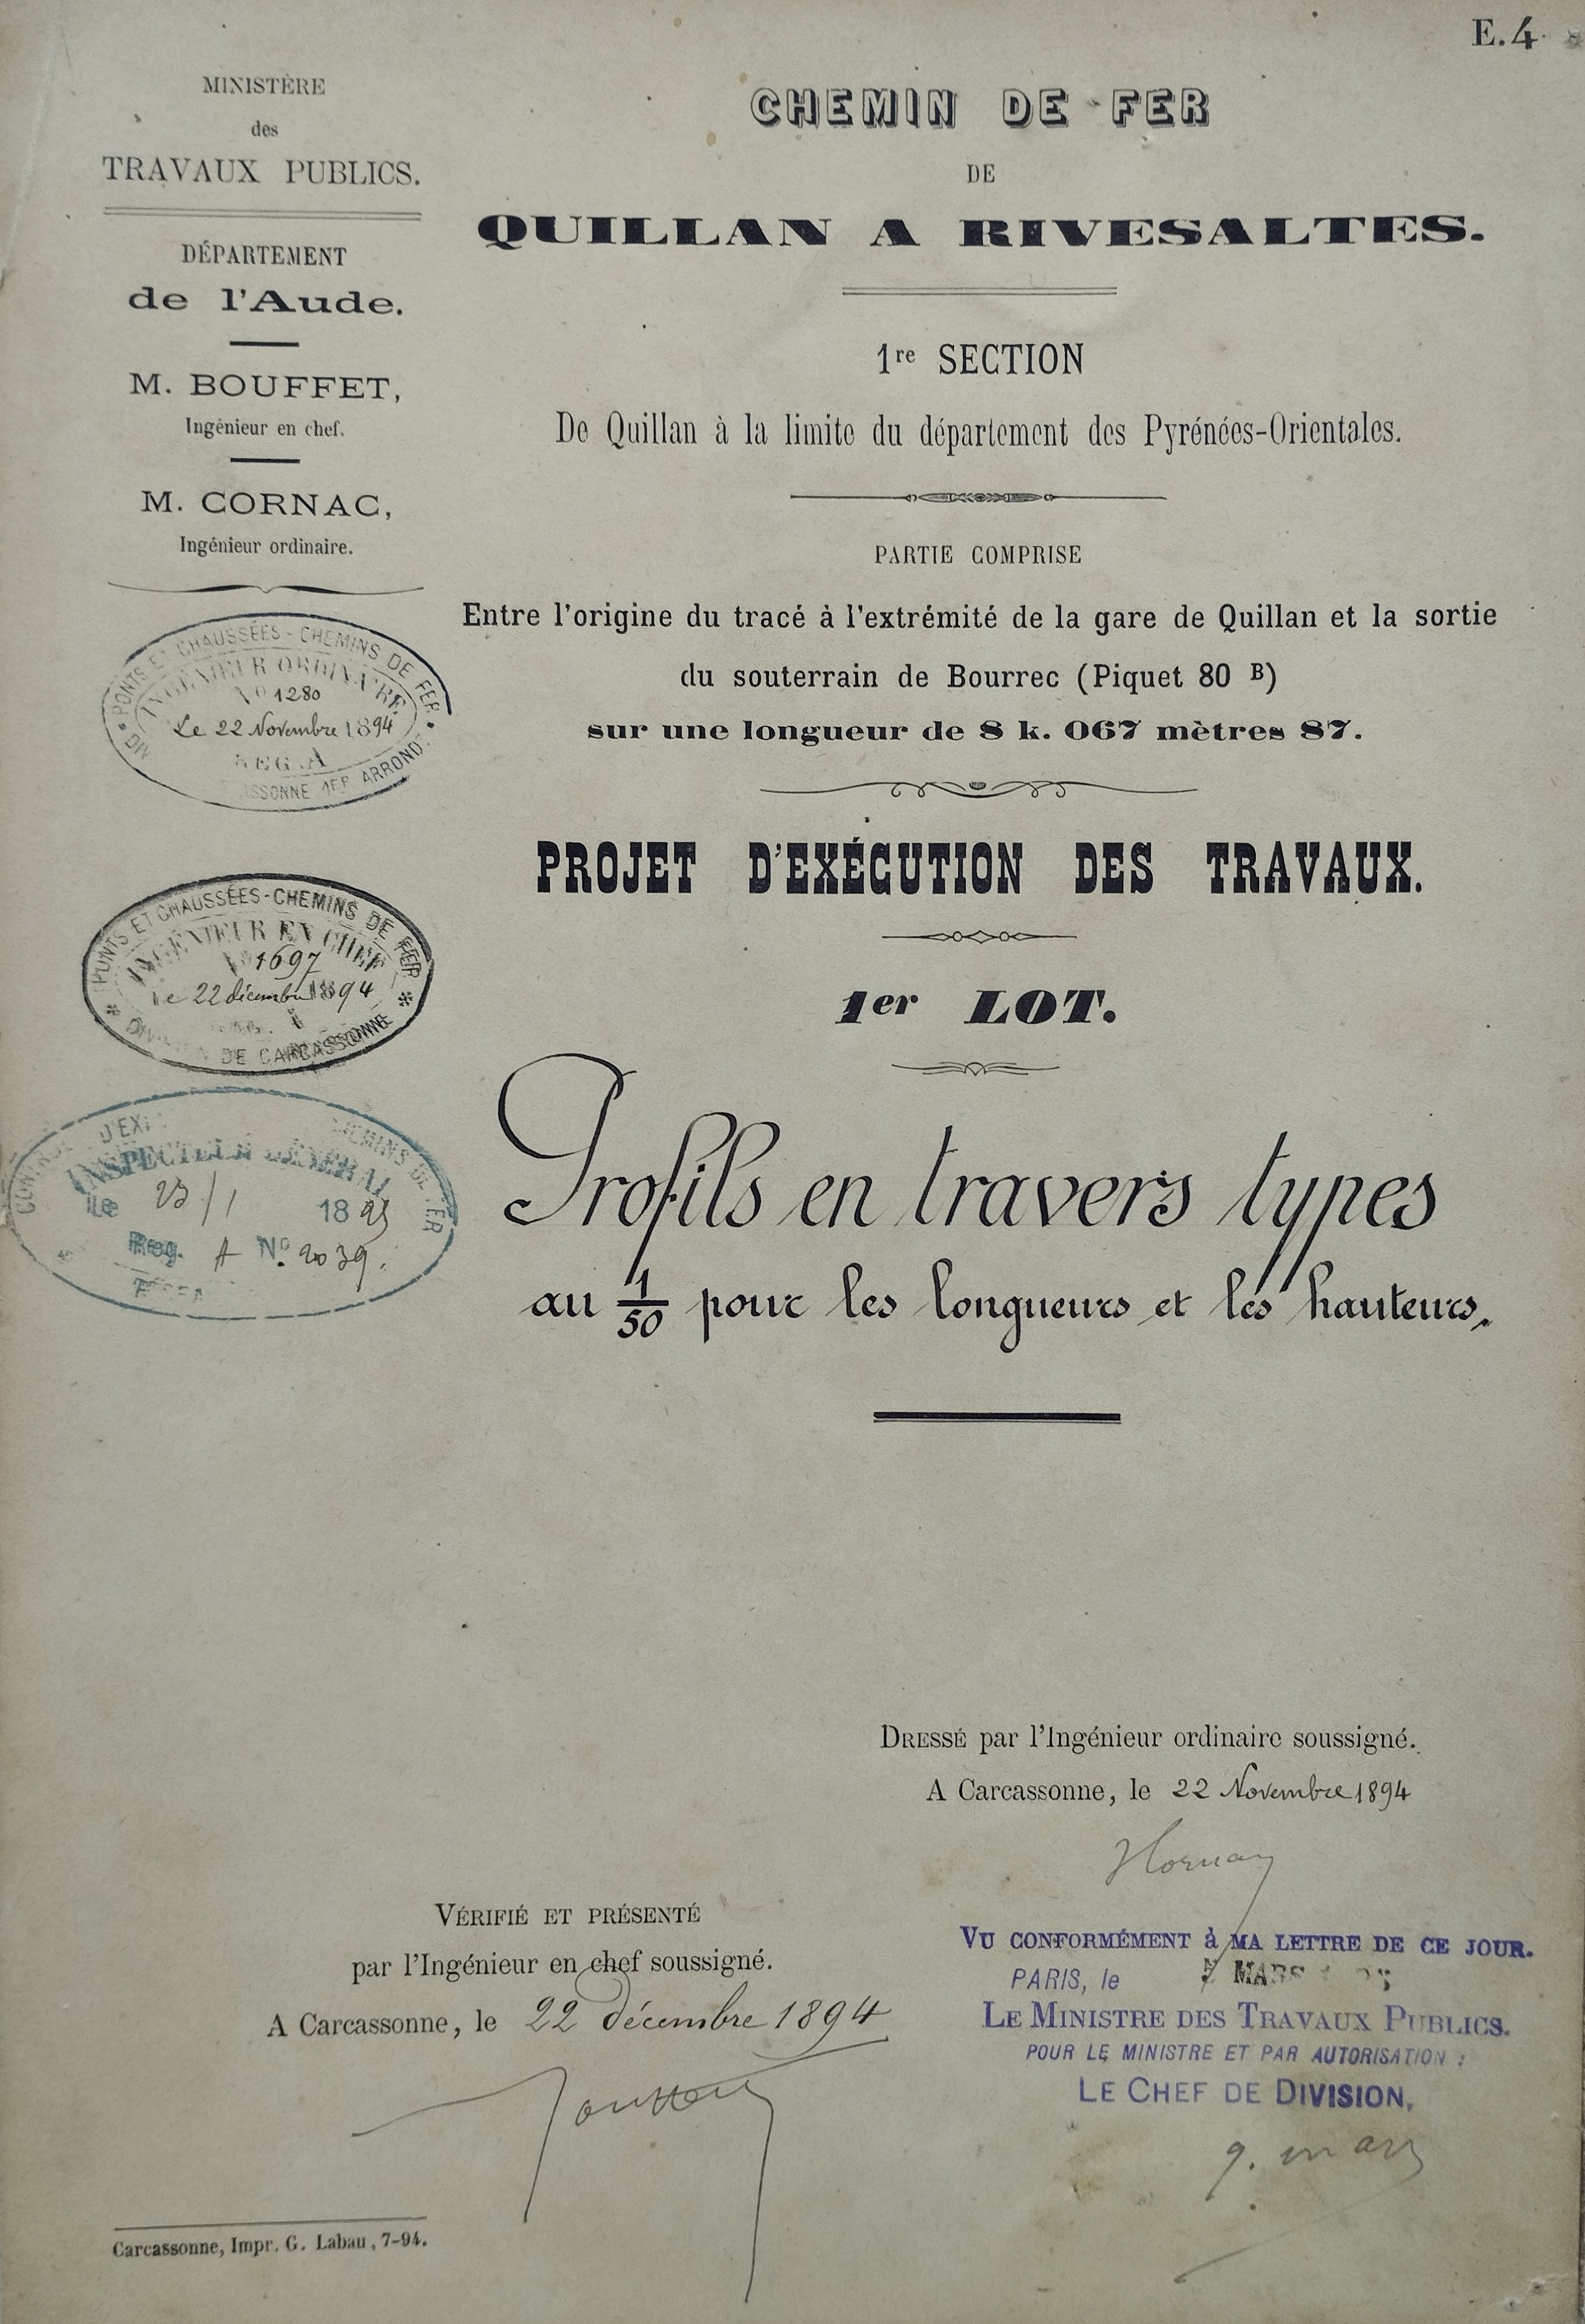 E.4
MINISTÈRE
des
TRAVAUX PUBLICS.
DÉPARTEMENT
de l'Aude.
M. BOUFFET,
Ingénieur en chef.
M. CORNAC,
Ingénieur ordinaire.
PONTS ET CHAUSSÉES - CHEMINS DE FER
INGÉNIEUR ORDINAIRE
No 1280
Le 22 Novembre 1894
REG. A
1ER ARROND.
PONTS ET CHAUSSÉES - CHEMINS DE FER
INGÉNIEUR EN CHEF
No 1697
Le 22 décembre 1894
DIVISION DE CARCASSONNE
CHEMINS DE FER
INSPECTEUR GÉNÉRAL
Le 23/1 1895
Reg. A No. 2039.
CHEMIN DE FER
DE
QUILLAN A RIVESALTES.
1re SECTION
De Quillan à la limite du département des Pyrénées-Orientales.
PARTIE COMPRISE
Entre l'origine du tracé à l'extrémité de la gare de Quillan et la sortie
du souterrain de Bourrec (Piquet 80 B)
sur une longueur de 8 k. 067 mètres 87.
PROJET D'EXÉCUTION DES TRAVAUX.
1er LOT.
Profils en travers types
au 1/50 pour les longueurs et les hauteurs.
DRESSÉ par l'Ingénieur ordinaire soussigné.
A Carcassonne, le 22 Novembre 1894
VÉRIFIÉ ET PRÉSENTÉ
par l'Ingénieur en chef soussigné.
A Carcassonne, le 22 décembre 1894
VU CONFORMÉMENT à MA LETTRE DE CE JOUR.
PARIS, le MARS
LE MINISTRE DES TRAVAUX PUBLICS.
POUR LE MINISTRE ET PAR AUTORISATION :
LE CHEF DE DIVISION,
Carcassonne, Impr. G. Labau, 7-94.